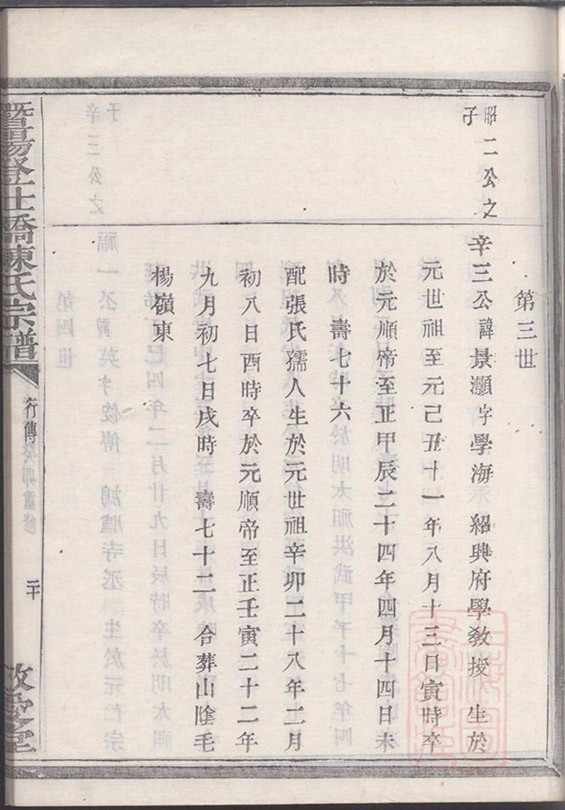 第三世
昭二公之
子
辛三公諱景灝字學海 紹興府學敎授 生於
元世祖至元己丑十一年八月十三日寅時卒
於元順帝至正甲辰二十四年四月十四日未
時 壽七十六
配張氏孺人生於元世祖辛卯二十八年二月
初八日酉時卒於元順帝至正壬寅二十二年
九月初七日戌時 壽七十二 合葬山陰毛
楊嶺東
暨陽登仕橋陳氏宗譜
行傳 癸卯重修
二十
敬愛堂